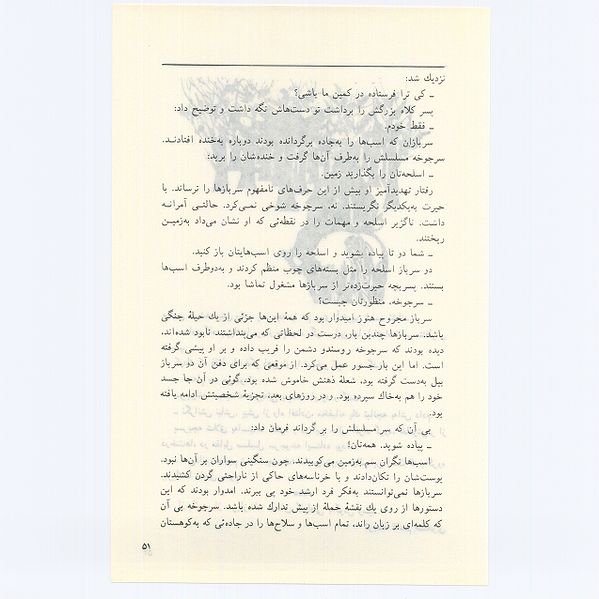 نزدیک شد:
ـ کی ترا فرستاده در کمین ما باشی؟
پسر کلاه بزرگش را برداشت تو دست‌هاش نگه داشت و توضیح داد:
ـ فقط خودم.
سربازان که اسب‌ها را به‌جاده برگردانده بودند دوباره به‌خنده افتادنـد.
سرجوخه مسلسلش را به‌طرف آن‌ها گرفت و خنده‌شان را برید:
ـ اسلحه‌تان را بگذارید زمین.
رفتار تهدیدآمیز او بیش از این حرف‌های نامفهوم سربازها را ترساند. با
حیرت به‌یکدیگر نگریستند. نه، سرجوخه شوخی نمـی‌کرد. حالتـی آمرانـه
داشت. ناگزیر اسلحه و مهمات را در نقطه‌ئی که او نشان می‌داد به‌زمیـن
ریختند.
ـ شما دو تا پیاده بشوید و اسلحه را روی اسب‌هایتان باز کنید.
دو سرباز اسلحه را مثل بسته‌های چوب منظم کردند و به‌دوطرف اسب‌ها
بستند. پسربچه حیرت‌زده‌تر از سربازها مشغول تماشا بود.
ـ سرجوخه، منظورتان چیست؟
سرباز مجروح هنوز امیدوار بود که همهٔ این‌ها جزئی از یك حیلهٔ جنگی
باشد. سربازها چندین بار، درست در لحظاتی که می‌پنداشتند نابود شده‌اند،
دیده بودند که سرجوخه روسندو دشمن را فریب داده و بر او پیشی گرفته
است. اما این بار جسور عمل می‌کرد. از موقعی که برای دفن آن دو سرباز
بیل به‌دست گرفته بود، شعلهٔ ذهنش خاموش شده بود. گوئی در آن جا جسد
خود را هم به‌خاك سپرده بود. و در روزهای بعد، تجزیهٔ شخصیتش ادامه یافته
بود.
بی آن که سر مسلسلش را بر گرداند فرمان داد:
ـ پیاده شوید. همه‌تان!
اسب‌ها نگران سم به‌زمین می‌کوبیدند. چون سنگینی سواران بر آن‌ها نبود،
پوست‌شان را تکان‌دادند و با خرناسه‌های حاکی از ناراحتی گردن کشیدند.
سربازها نمی‌توانستند به‌فکر فرد ارشد خود پی ببرند. امدوار بودند که این
دستورها از روی یك نقشهٔ حملهٔ از پیش تدارك شده باشد. سرجوخه بی آن
که کلمه‌ای بر زبان راند، تمام اسب‌ها و سلاح‌ها را در جاده‌ئی که به‌کوهستان
۵۱